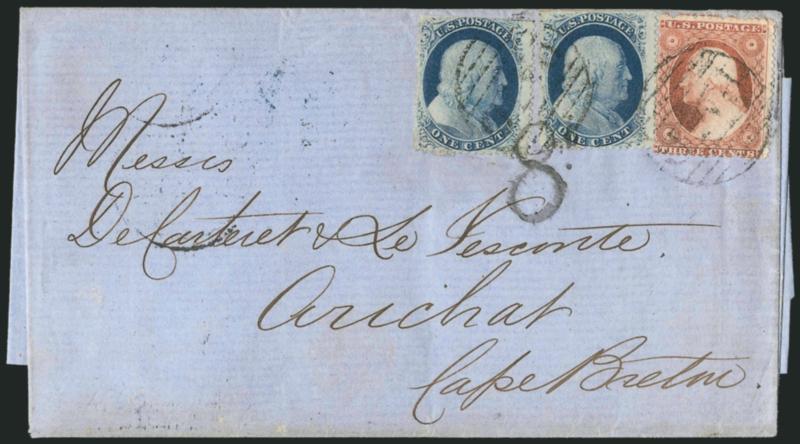 U.S. POSTAGE
ONE CENT
U.S. POSTAGE
ONE CENT
U.S. POSTAGE
THREE CENTS
8.
Messrs
DeCarteret & Le Vesconte.
Arichat
Cape Breton.